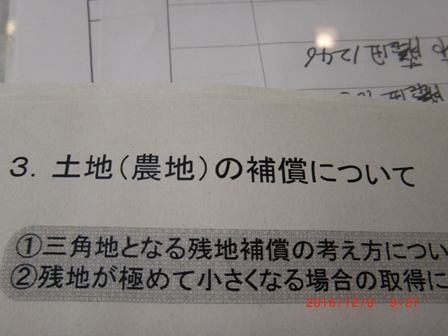 3．土地（農地）の補償について
①三角地となる残地補償の考え方につい
②残地が極めて小さくなる場合の取得に
2016/12/9 9:27